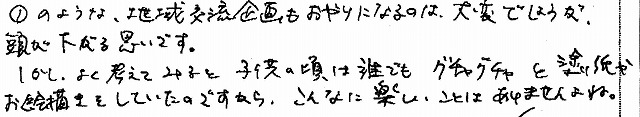 ①のような、地域交流企画もおやりになるのは、大変でしょうな?
頭が下がる思いです。
しかし、よく考えてみると子供の頃は誰でもグチャグチャと塗り紙か
お絵描きをしていたのですから、こんなに楽しいことはありませんよね。